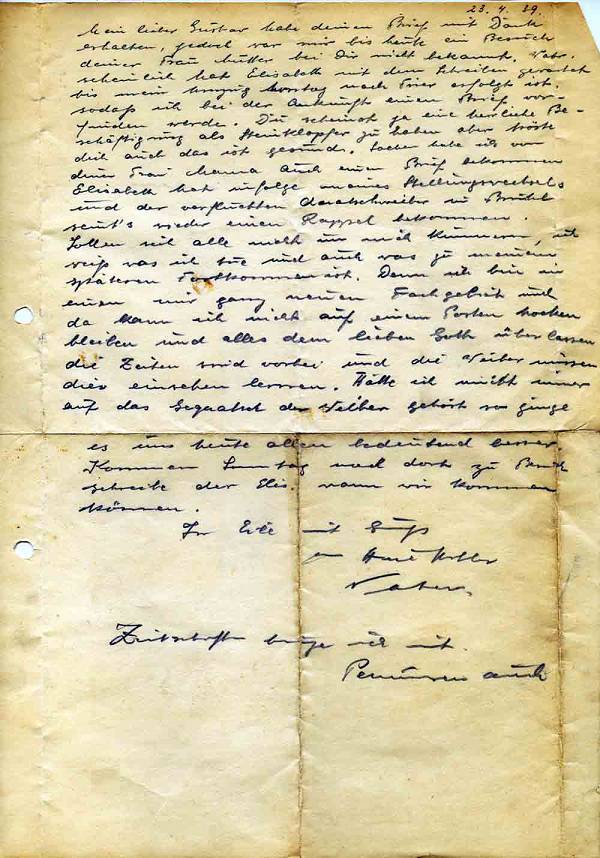 23. 4. 39.
Mein lieber Gustav habe deinen Brief mit Dank
erhalten, jedoch war mir bis heute ein Besuch
deiner Frau Mutter bei Dir nicht bekannt. Wahr-
scheinlich hat Elisabeth mit dem Schreiben gewartet
bis mein Umzug nach Trier erfolgt ist.
sodaß ich bei der Ankunft einen Brief vor-
finden werde. Du scheinst ja eine herliche Be-
schäftigung als Steinklopfer zu haben aber tröste
dich auch das ist gesund. Soeben habe ich von
deiner Frau Mama auch einen Brief bekommen
Elisabeth hat infolge meines Stellungswechsels
und der verfluchten in Brühl
wieder einen Rappel bekommen.
Sollen sich alle nicht um mich kümmern, ich
weiß was ich tue und auch was zu meinem
späteren Fortkommen ist. Denn ich bin in
einem mir ganz neuen Fachgebiet und
da kann ich nicht auf einem Posten hocken
bleiben und alles dem lieben Gott überlassen
die Zeiten sind vorbei und die Weiber müssen
dies einsehen lernen. Hätte ich nicht immer
auf das Gequatsch der Weiber gehört so ginge
es uns heute allen bedeutend besser.
Kommen Sonntag nach dort zu Besuch
schreibe der Elis. wann wir kommen
können.
In Eile mit Gruß
Vater.
Zeitschriften bringe ich mit.
auch